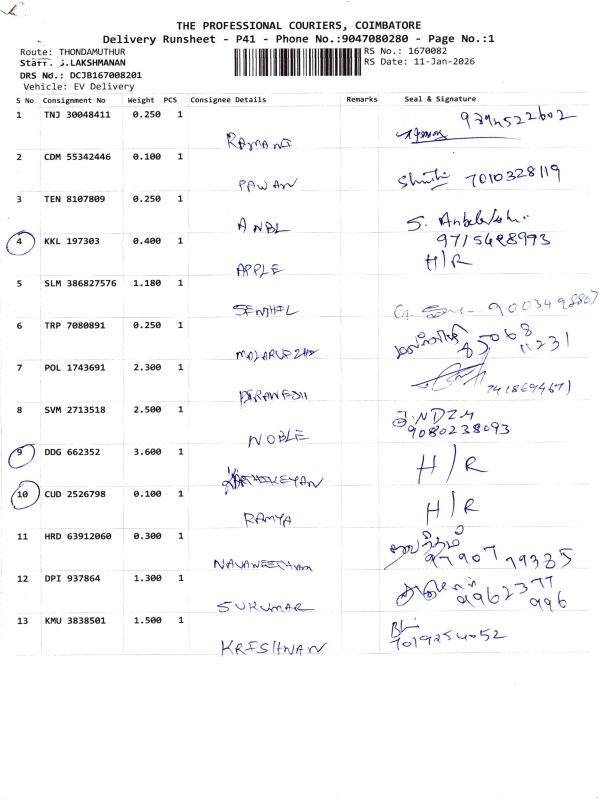 THE PROFESSIONAL COURIERS, COIMBATORE
Delivery Runsheet - P41 - Phone No.:9047080280 - Page No.:1
Route: THONDAMUTHUR
RS No.: 1670082
Staff: G.LAKSHMANAN
RS Date: 11-Jan-2026
DRS No.: DCJB167008201
Vehicle: EV Delivery
S No Consignment No Weight PCS Consignee Details Remarks Seal & Signature
1 TNJ 30048411 0.250 1
RAMANI
2 CDM 55342446 0.100 1
PAWAN Shruthi 7010328119
3 TEN 8107809 0.250 1
ANBU S.
4 KKL 197303 0.400 1
APPLE H/R
5 SLM 386827576 1.180 1
SENTHIL
6 TRP 7080891 0.250 1
7 POL 1743691 2.300 1
8 SVM 2713518 2.500 1
NOBLE 9080238093
9 DDG 662352 3.600 1
KARTHIKEYAN H/R
10 CUD 2526798 0.100 1
RAMYA H/R
11 HRD 63912060 0.300 1
NAVANEETHAM 97907 79385
12 DPI 937864 1.300 1
SUKUMAR 9962377
996
13 KMU 3838501 1.500 1
KRISHNAN 7019254052